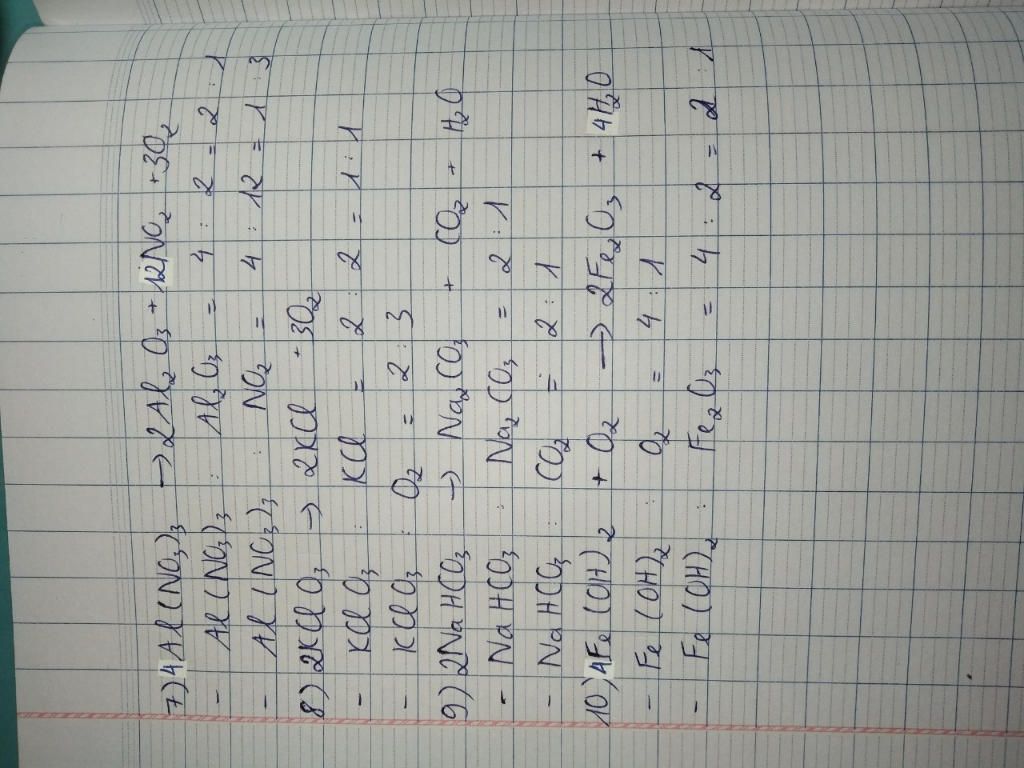 7) 4Al(NO3)3 → 2Al2O3 + 12NO2 + 3O2
- Al(NO3)3 : Al2O3 = 4 : 2 = 2 : 1
- Al(NO3)3 : NO2 = 4 : 12 = 1 : 3
8) 2KClO3 → 2KCl + 3O2
- KClO3 : KCl = 2 : 2 = 1 : 1
- KClO3 : O2 = 2 : 3
9) 2NaHCO3 → Na2CO3 + CO2 + H2O
- NaHCO3 : Na2CO3 = 2 : 1
- NaHCO3 : CO2 = 2 : 1
10) 4Fe(OH)2 + O2 → 2Fe2O3 + 4H2O
- Fe(OH)2 : O2 = 4 : 1
- Fe(OH)2 : Fe2O3 = 4 : 2 = 2 : 1